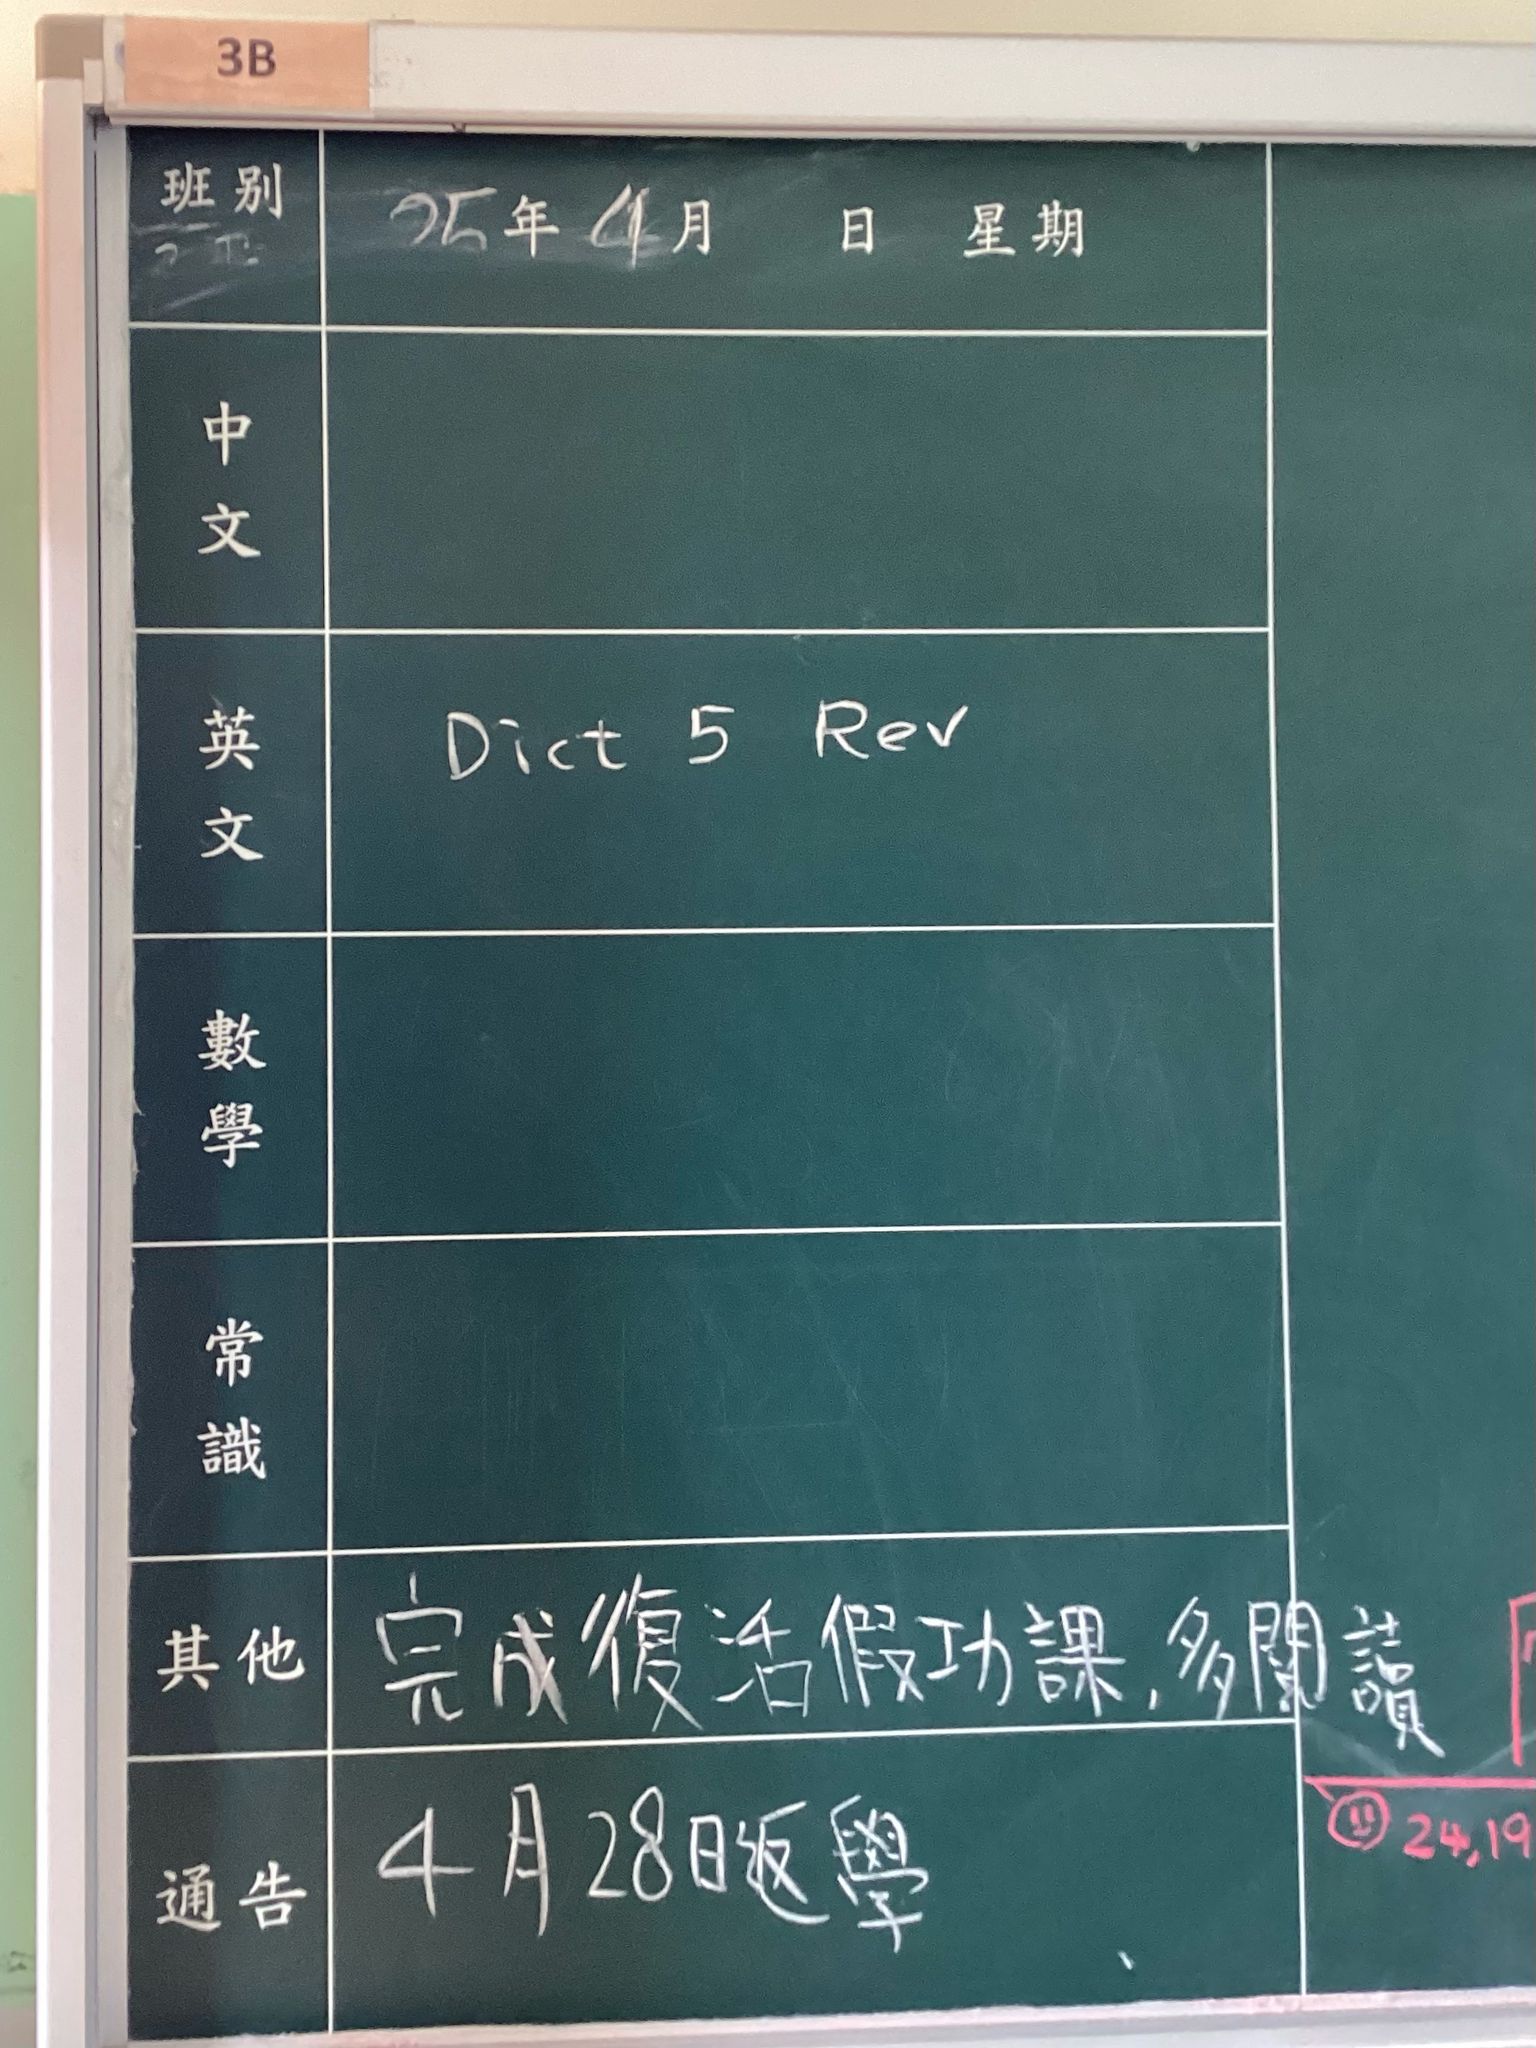 3B
班別
25年 4月 日 星期
中文
英文
Dict 5 Rev
數學
常識
其他
完成復活假功課，多閱讀
通告
4月28日返學
24,19